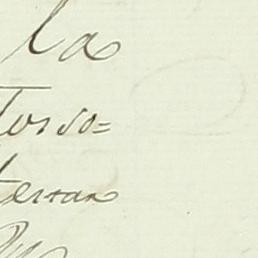 la
Torso=
terran